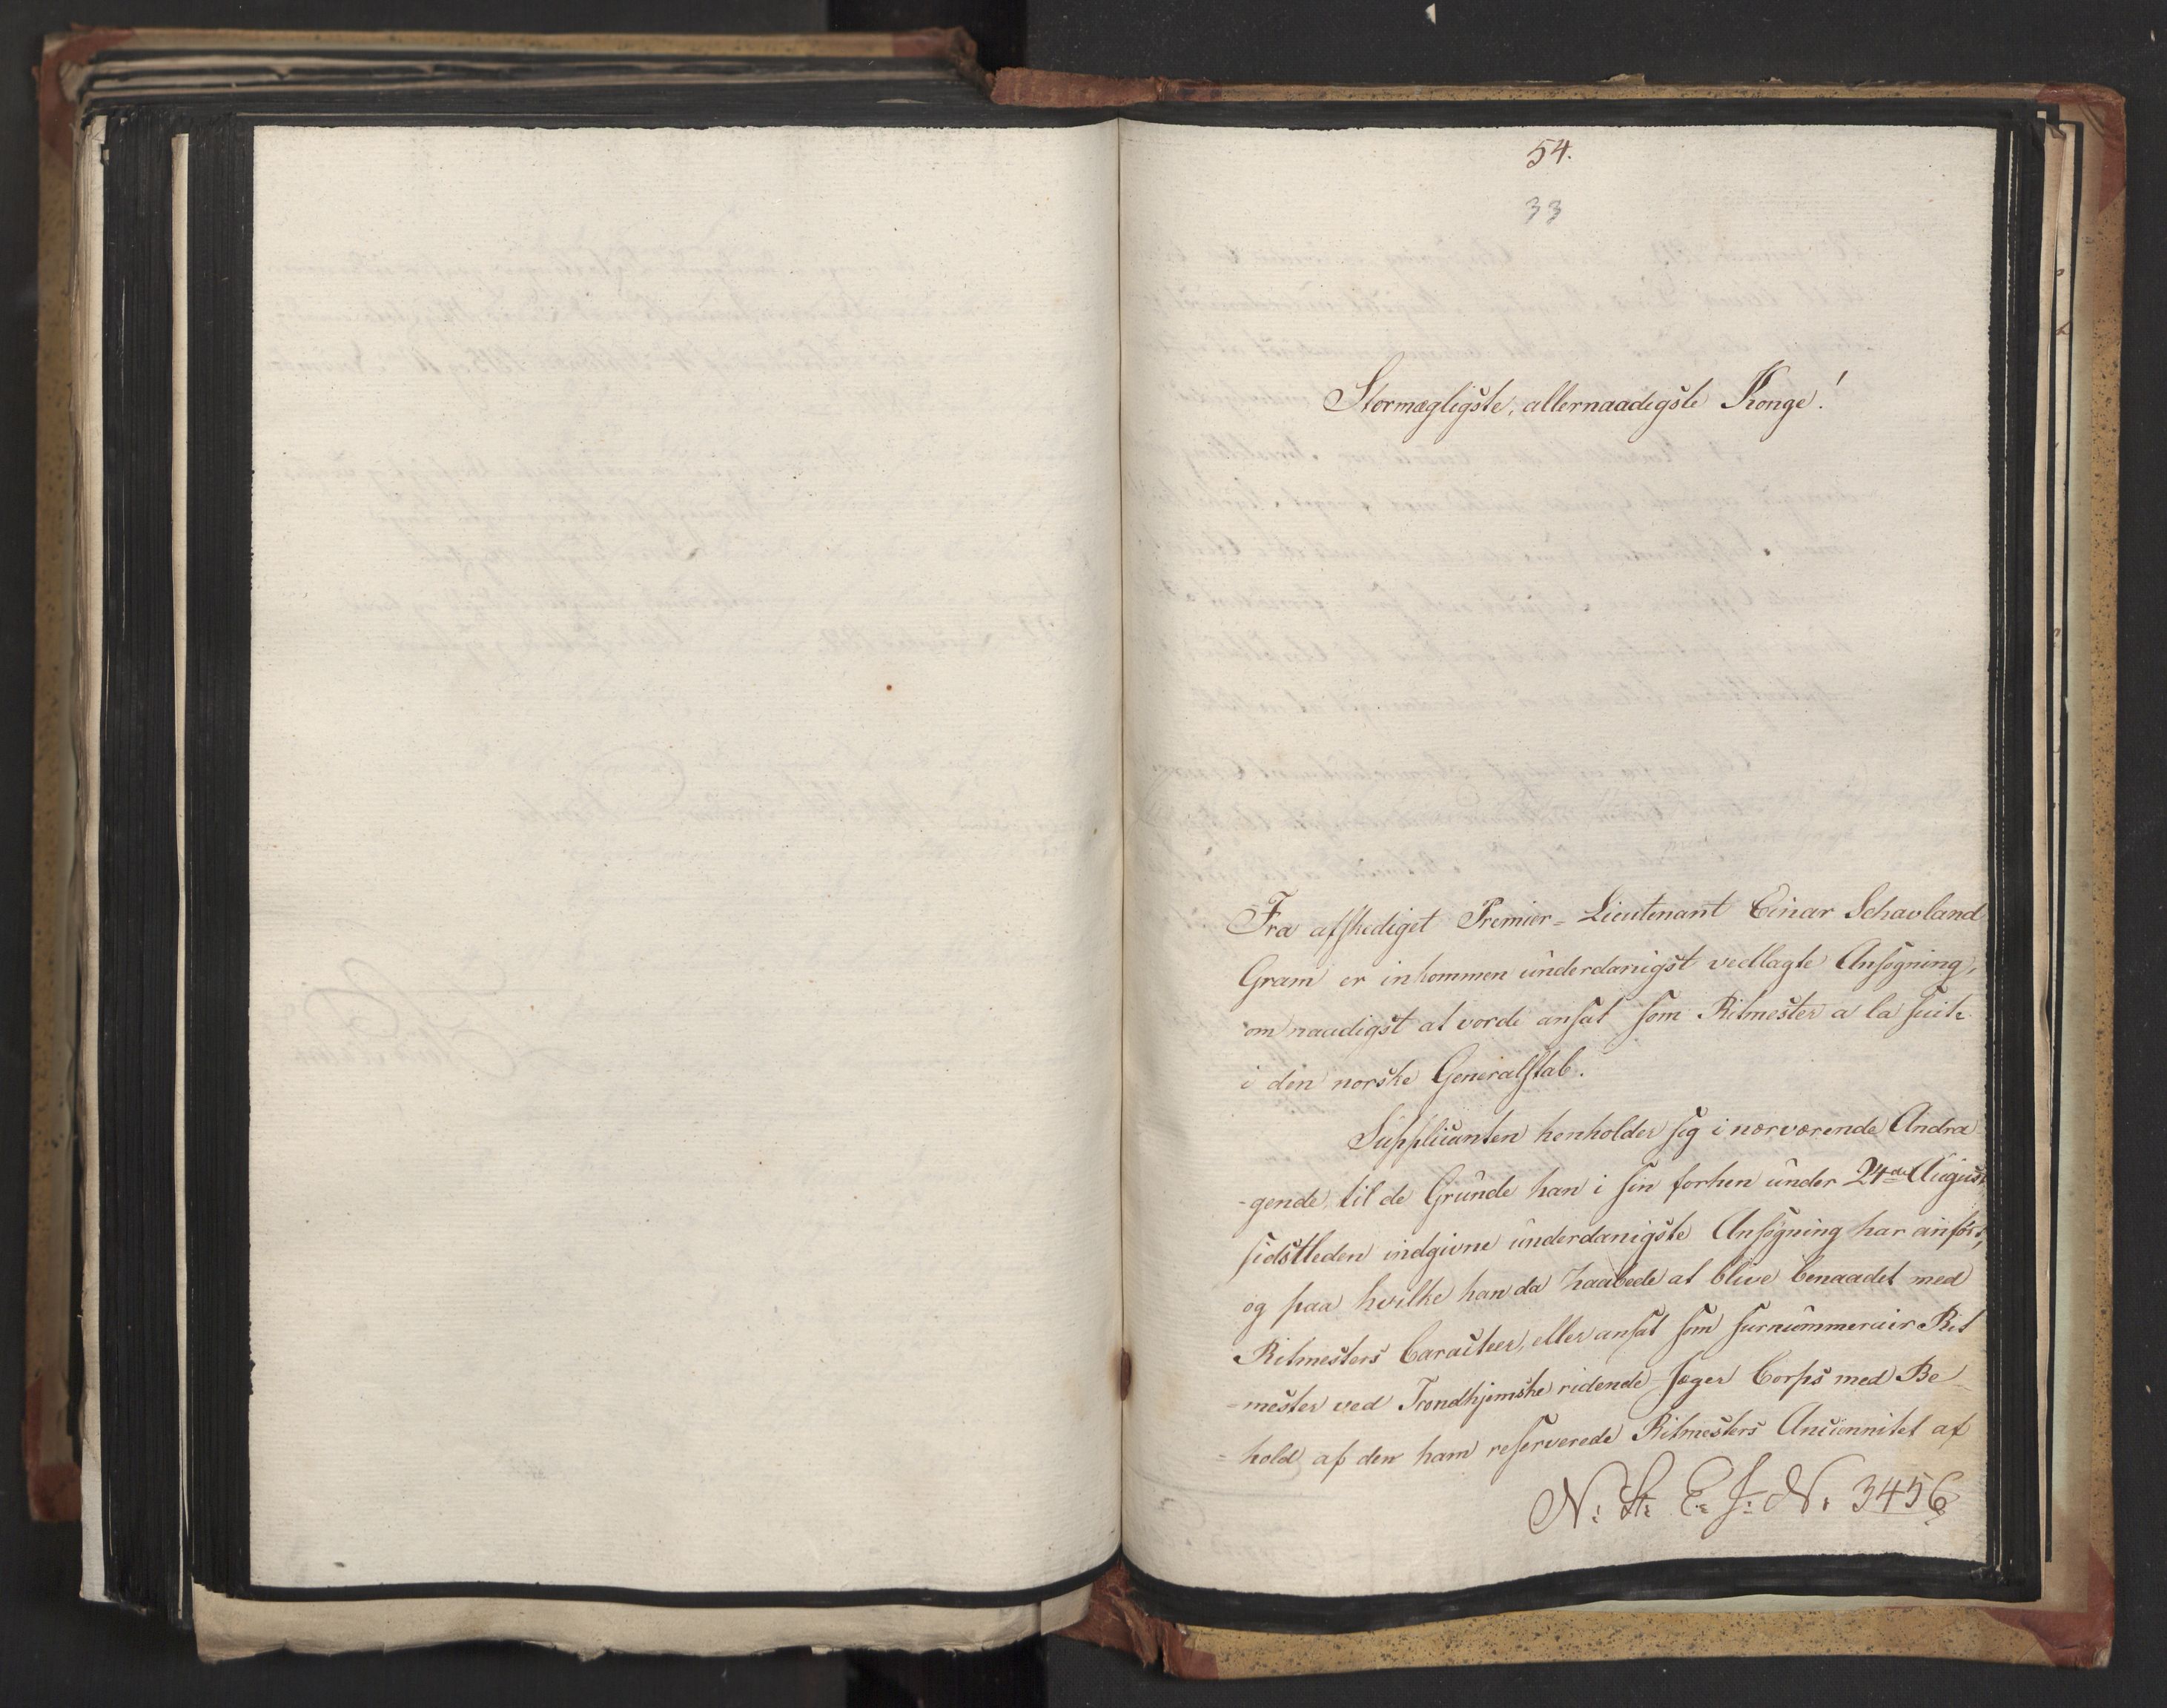 54.
33
Stormægtigste, allernaadigste Konge!
Fra afskediget Premier-Lieutenant Einar Schavland
Gram er inkommen underdanigst vedlagte Ansøgning,
om naadigst at vorde ansat som Ritmester a la suite
i den norske Generalstab.
Supplicanten henholder sig i nærværende Andra
-gende til de Grunde han i sin forhen under 24de August
sidstleden indgivne underdanigste Ansøgning har anført,
og paa hvilke han da haabede at blive benaadet med
Ritmesters Caracteer, eller ansat som surnummerair Rit
-mester ved Trondhjemske ridende Jæger Corps med Be
-hold af den ham reserverede Ritmesters Anciennitet af
N: St: E: J: N: 3456